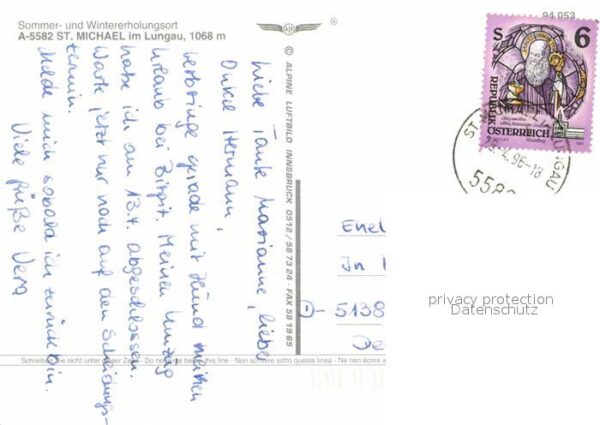 Sommer- und Wintererholungsort
A-5582 ST. MICHAEL im Lungau, 1068 m
94 053
© ALPINE LUFTBILD INNSBRUCK 0512 / 58 73 24 - FAX 58 19 65
Liebe Tante Marianne, liebe
Onkel Hermann,
verbringe gerade mit Hund meinen
Urlaub bei Birgit. Meinen Umzug
habe ich am 13.4. abgeschlossen.
Warte jetzt nur noch auf den Scheidungs-
termin.
Melde mich sobald ich zurück bin.
Viele Grüße Vera
S 6
REPUBLIK
ÖSTERREICH
ST
LUNGAU
.4.96-18
558
Enel
In
D- 5138
De
privacy protection
Datenschutz
Schreiben Sie nicht unter dieser Zeile - Do not write below this line - Non scrivere sotto questa linea - Ne rien écrire a